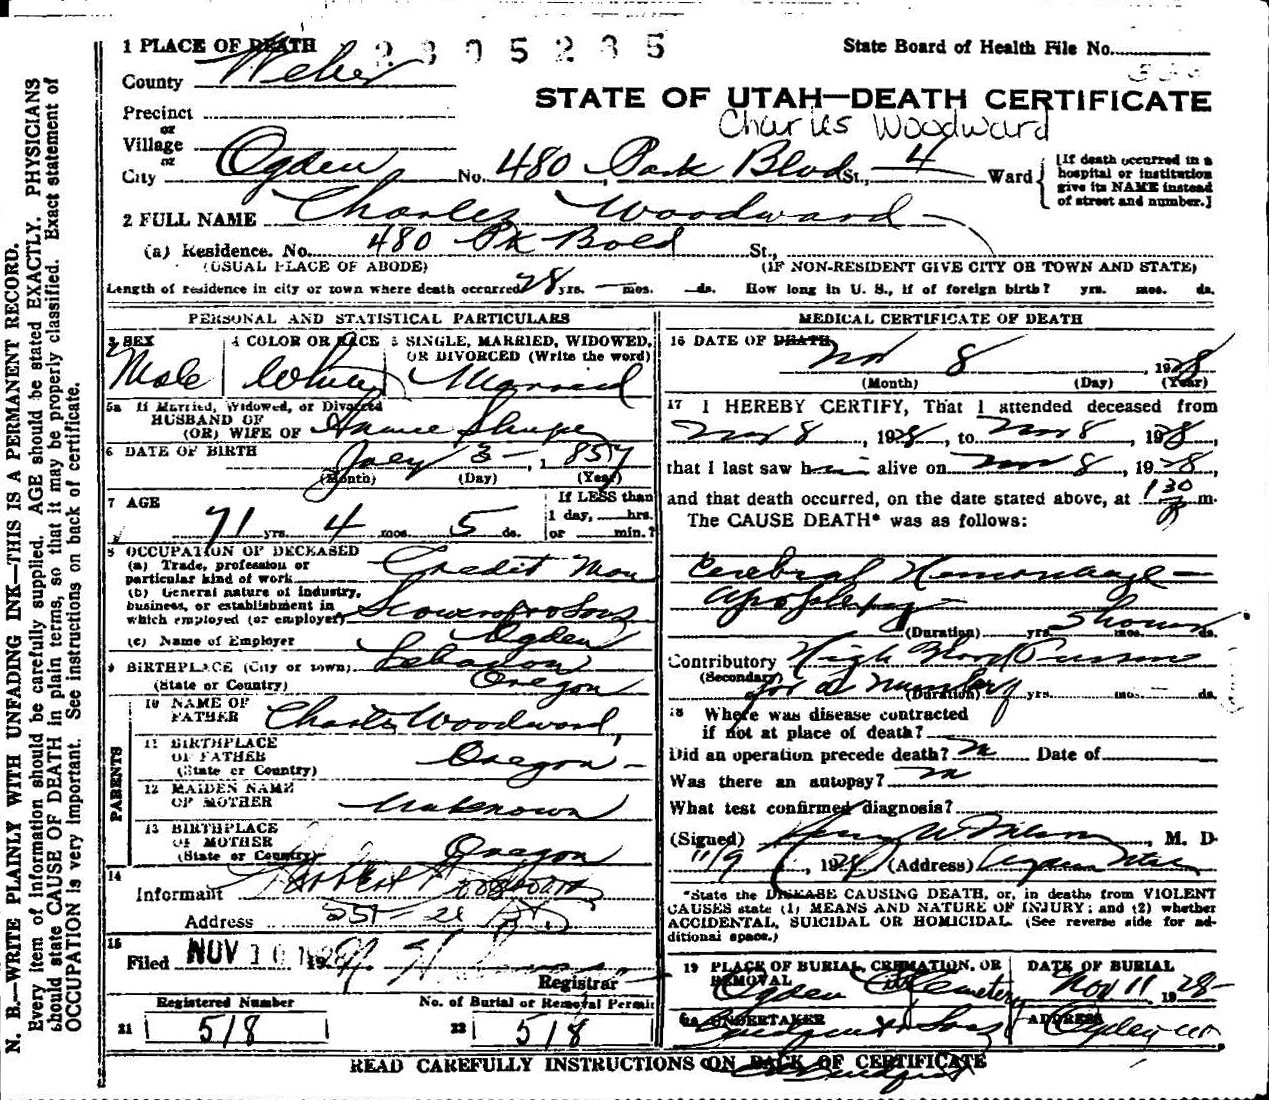 1 PLACE OF DEATH 2805235 State Board of Health File No.
County Weber
STATE OF UTAH—DEATH CERTIFICATE
Precinct
Charles Woodward
or
Village
or
City Ogden No. 480 Park Blvd St., 4 Ward
[If death occurred in a
hospital or institution
give its NAME instead
of street and number.]
2 FULL NAME Charles Woodward
(a) Residence. No. 480 Pk Bold St.,
(USUAL PLACE OF ABODE) (IF NON-RESIDENT GIVE CITY OR TOWN AND STATE)
Length of residence in city or town where death occurred 28 yrs. — mos. ds. How long in U. S., if of foreign birth? yrs. mos. ds.
PERSONAL AND STATISTICAL PARTICULARS
3 SEX 4 COLOR OR RACE 5 SINGLE, MARRIED, WIDOWED,
OR DIVORCED (Write the word)
Male White Married
5a If Married, Widowed, or Divorced
HUSBAND OF
(OR) WIFE OF Annie Shupe
6 DATE OF BIRTH July 3 — 1857
(Month) (Day) (Year)
7 AGE If LESS than
1 day, hrs.
71 yrs. 4 mos. 5 ds. or min.?
8 OCCUPATION OF DECEASED
(a) Trade, profession or
particular kind of work Credit Man
(b) General nature of industry,
business, or establishment in
which employed (or employer) Scowcroft & Sons
(c) Name of Employer Ogden
9 BIRTHPLACE (City or town) Lebanon
(State or Country) Oregon
PARENTS
10 NAME OF
FATHER Charles Woodward
11 BIRTHPLACE
OF FATHER
(State or Country) Oregon —
12 MAIDEN NAME
OF MOTHER Unknown
13 BIRTHPLACE
OF MOTHER
(State or Country) Oregon
14
Informant Woodward
Address
15
Filed NOV 10 1928
Registrar
Registered Number No. of Burial or Removal Permit
21 518 22 518
MEDICAL CERTIFICATE OF DEATH
16 DATE OF DEATH
Nov 8, 1928
(Month) (Day) (Year)
17 I HEREBY CERTIFY, That I attended deceased from
Nov 8, 1928, to Nov 8, 1928,
that I last saw him alive on Nov 8, 1928,
and that death occurred, on the date stated above, at 1 30 P m.
The CAUSE DEATH* was as follows:
Cerebral Hemorrhage —
apoplexy
(Duration) yrs. 5 hours mos. ds.
Contributory High Blood Pressure
(Secondary) for a number (Duration) yrs. mos. — ds.
18 Where was disease contracted
if not at place of death?
Did an operation precede death? no Date of
Was there an autopsy? no
What test confirmed diagnosis?
(Signed) Henry W Nelson, M. D.
11/9, 1928 (Address) Ogden Utah
*State the DISEASE CAUSING DEATH, or, in deaths from VIOLENT
CAUSES state (1) MEANS AND NATURE OF INJURY; and (2) whether
ACCIDENTAL, SUICIDAL OR HOMICIDAL. (See reverse side for ad-
ditional space.)
19 PLACE OF BURIAL, CREMATION, OR
REMOVAL DATE OF BURIAL
Ogden City Cemetery Nov 11 1928
UNDERTAKER ADDRESS
Lindquist & Sons Ogden Ut
READ CAREFULLY INSTRUCTIONS ON BACK OF CERTIFICATE
Lindquist
N. B.—WRITE PLAINLY WITH UNFADING INK—THIS IS A PERMANENT RECORD.
Every item of information should be carefully supplied. AGE should be stated EXACTLY. PHYSICIANS
should state CAUSE OF DEATH in plain terms, so that it may be properly classified. Exact statement of
OCCUPATION is very important. See instructions on back of certificate.